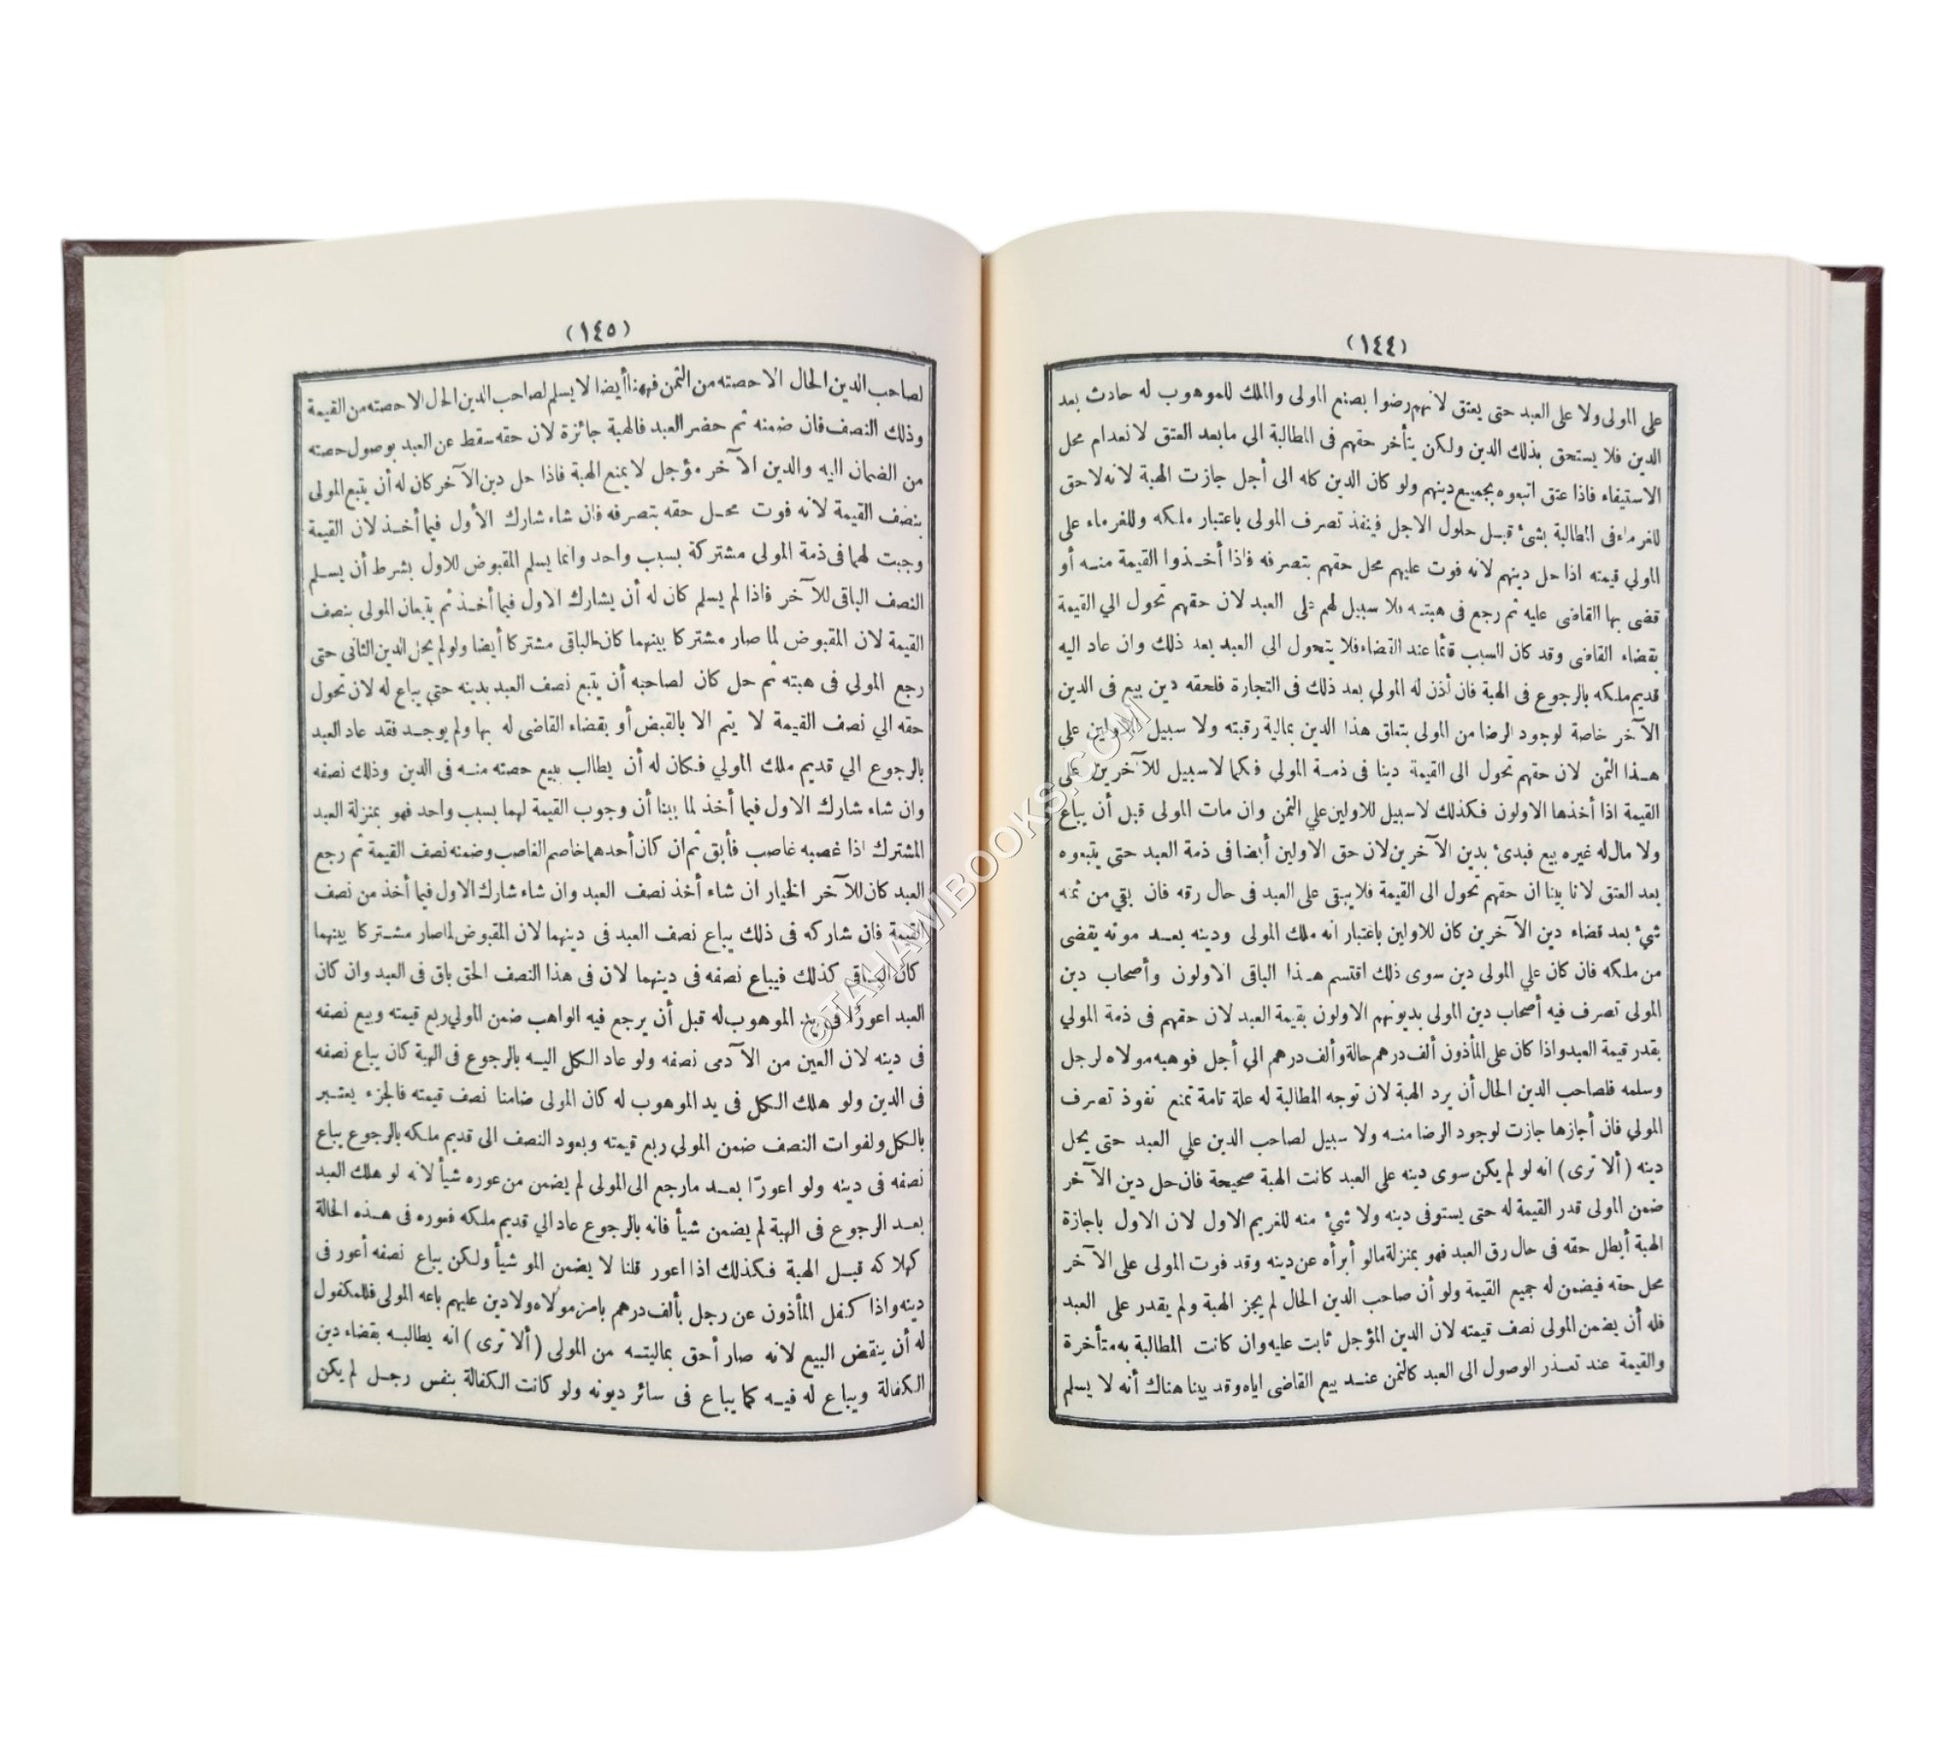 (١٤٤)
على المولى ولا على العبد حتى يعتق لانهم رضوا بصنع المولى والملك للموهوب له حادث بعد
الدين فلا يستحق بذلك الدين ولكن يتأخر حقهم فى المطالبة الي مابعد العتق لانعدام محل
الاستيفاء فاذا عتق اتبعوه بجميع دينهم ولو كان الدين كله الى أجل جازت الهبة لانه لاحق
للغرماء فى المطالبة بشئ قبل حلول الاجل فينفذ تصرف المولى باعتبار ملكه وللغرماء على
المولي قيمته اذا حل دينهم لانه فوت عليهم محل حقهم بتصرفه فاذا أخذوا القيمة منه أو
قضى بها القاضى عليه ثم رجع فى هبته فلا سبيل لهم على العبد لان حقهم تحول الي القيمة
بقضاء القاضى وقد كان السبب قائما عند القضاء فلا يتحول الي العبد بعد ذلك وان عاد اليه
قديم ملكه بالرجوع فى الهبة فان أذن له المولي بعد ذلك فى التجارة فلحقه دين بيع فى الدين
الآخر خاصة لوجود الرضا من المولى بتعلق هذا الدين بمالية رقبته ولا سبيل للاولين علي
هذا الثمن لان حقهم تحول الى القيمة دينا فى ذمة المولي فكما لا سبيل للآخرين على
القيمة اذا أخذها الاولون فكذلك لاسبيل للاولين علي الثمن وان مات المولى قبل أن يباع
ولا مال له غيره بيع فبدئ بدين الآخرين لان حق الاولين أيضا فى ذمة العبد حتى يتبعوه
بعد العتق لانا بينا ان حقهم تحول الى القيمة فلا يبقى على العبد فى حال رقه فان بقي من ثمنه
شئ بعد قضاء دين الآخرين كان للاولين باعتبار انه ملك المولى ودينه بعد موته يقضى
من ملكه فان كان علي المولى دين سوى ذلك اقتسم هذا الباقى الاولون وأصحاب دين
المولى تصرف فيه أصحاب دين المولى بديونهم الاولون بقيمة العبد لان حقهم فى ذمة المولي
بقدر قيمة العبد واذا كان على المأذون ألف درهم حالة وألف درهم الي أجل فوهبه مولاه لرجل
وسلمه فلصاحب الدين الحال أن يرد الهبة لان توجه المطالبة له علة تامة تمنع نفوذ تصرف
المولي فان أجازها جازت لوجود الرضا منه ولا سبيل لصاحب الدين علي العبد حتى يحل
دينه (ألا ترى) انه لو لم يكن سوى دينه على العبد كانت الهبة صحيحة فان حل دين الآخر
ضمن المولى قدر القيمة له حتى يستوفى دينه ولا شئ منه للغريم الاول لان الاول باجازة
الهبة أبطل حقه فى حال رق العبد فهو بمنزلة مالو أبرأه عن دينه وقد فوت المولى على الآخر
محل حقه فيضمن له جميع القيمة ولو أن صاحب الدين الحال لم يجز الهبة ولم يقدر على العبد
فله أن يضمن المولى نصف قيمته لان الدين المؤجل ثابت عليه وان كانت المطالبة به متأخرة
والقيمة عند تعذر الوصول الى العبد كالثمن عند بيع القاضى اياه وقد بينا هناك أنه لا يسلم
(١٤٥)
لصاحب الدين الحال الا حصته من الثمن فههنا أيضا لا يسلم لصاحب الدين الحال الا حصته من القيمة
وذلك النصف فان ضمنه ثم حضر العبد فالهبة جائزة لان حقه سقط عن العبد بوصول حصته
من الضمان اليه والدين الآخر مؤجل لا يمنع الهبة فاذا حل دين الآخر كان له أن يتبع المولى
بنصف القيمة لانه فوت محل حقه بتصرفه فان شاء شارك الأول فيما أخذ لان القيمة
وجبت لهما فى ذمة المولى مشتركة بسبب واحد وانما يسلم المقبوض للاول بشرط أن يسلم
النصف الباقى للآخر فاذا لم يسلم كان له أن يشارك الاول فيما أخذ ثم يتبعان المولى بنصف
القيمة لان المقبوض لما صار مشتركا بينهما كان الباقى مشتركا أيضا ولو لم يحل الدين الثانى حتى
رجع المولي فى هبته ثم حل كان لصاحبه أن يتبع نصف العبد بدينه حتي يباع له لان تحول
حقه الي نصف القيمة لا يتم الا بالقبض أو بقضاء القاضى له بها ولم يوجد فقد عاد العبد
بالرجوع الي قديم ملك المولي فكان له أن يطالب ببيع حصته منه فى الدين وذلك نصفه
وان شاء شارك الاول فيما أخذ لما بينا أن وجوب القيمة لهما بسبب واحد فهو بمنزلة العبد
المشترك اذا غصبه غاصب فأبق ثم ان كان أحدهما خاصم الغاصب وضمنه نصف القيمة ثم رجع
العبد كان للآخر الخيار ان شاء أخذ نصف العبد وان شاء شارك الاول فيما أخذ من نصف
القيمة فان شاركه فى ذلك يباع نصف العبد فى دينهما لان المقبوض لما صار مشتركا بينهما
كان الباقى كذلك فيباع نصفه فى دينهما لان فى هذا النصف الحق باق فى العبد وان كان
العبد اعور فى يد الموهوب له قبل أن يرجع فيه الواهب ضمن المولي ربع قيمته وبيع نصفه
فى دينه لان العين من الآدمى نصفه ولو عاد الكل اليه بالرجوع فى الهبة كان يباع نصفه
فى الدين ولو هلك الكل فى يد الموهوب له كان المولى ضامنا نصف قيمته فالجزء يعتبر
بالكل ولفوات النصف ضمن المولي ربع قيمته وبعود النصف الى قديم ملكه بالرجوع يباع
نصفه فى دينه ولو اعور بعد مارجع الى المولى لم يضمن من عوره شيأ لانه لو هلك العبد
بعد الرجوع فى الهبة لم يضمن شيأ فانه بالرجوع عاد الي قديم ملكه فعوره فى هذه الحالة
كهلاكه قبل الهبة فكذلك اذا اعور قلنا لا يضمن المو شيأ ولكن يباع نصفه أعور فى
دينه واذا كفل المأذون عن رجل بألف درهم بامر مولاه ولا دين عليهم باعه المولى فللمكفول
له أن ينقض البيع لانه صار أحق بماليته من المولى (ألا ترى) انه يطالبه بقضاء دين
الكفالة ويباع له فيه كما يباع فى سائر ديونه ولو كانت الكفالة بنفس رجل لم يكن
©TAHAMBOOKS.COM